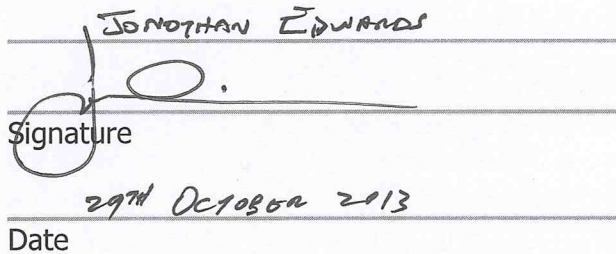 JONOTHAN EDWARDS
Signature
29TH OCTOBER 2013
Date